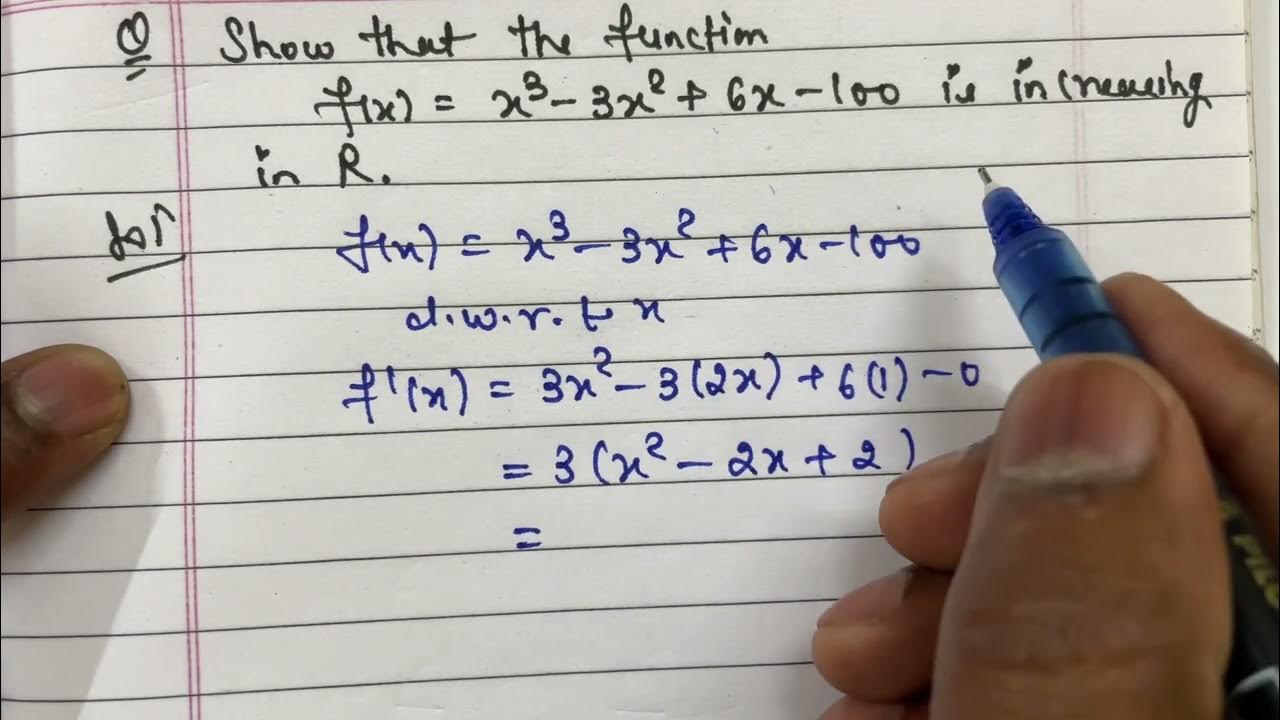 Q Show that the function
f(x) = x³ - 3x² + 6x - 100 is increasing
in R.
Sol f(x) = x³ - 3x² + 6x - 100
d.w.r. t x
f'(x) = 3x² - 3(2x) + 6(1) - 0
= 3(x² - 2x + 2)
=